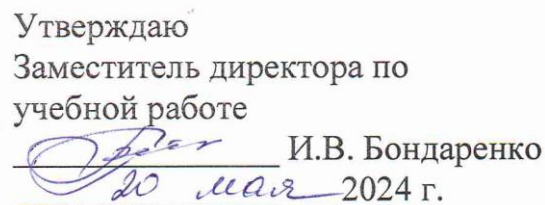 Утверждаю
Заместитель директора по
учебной работе
И.В. Бондаренко
20 мая 2024 г.